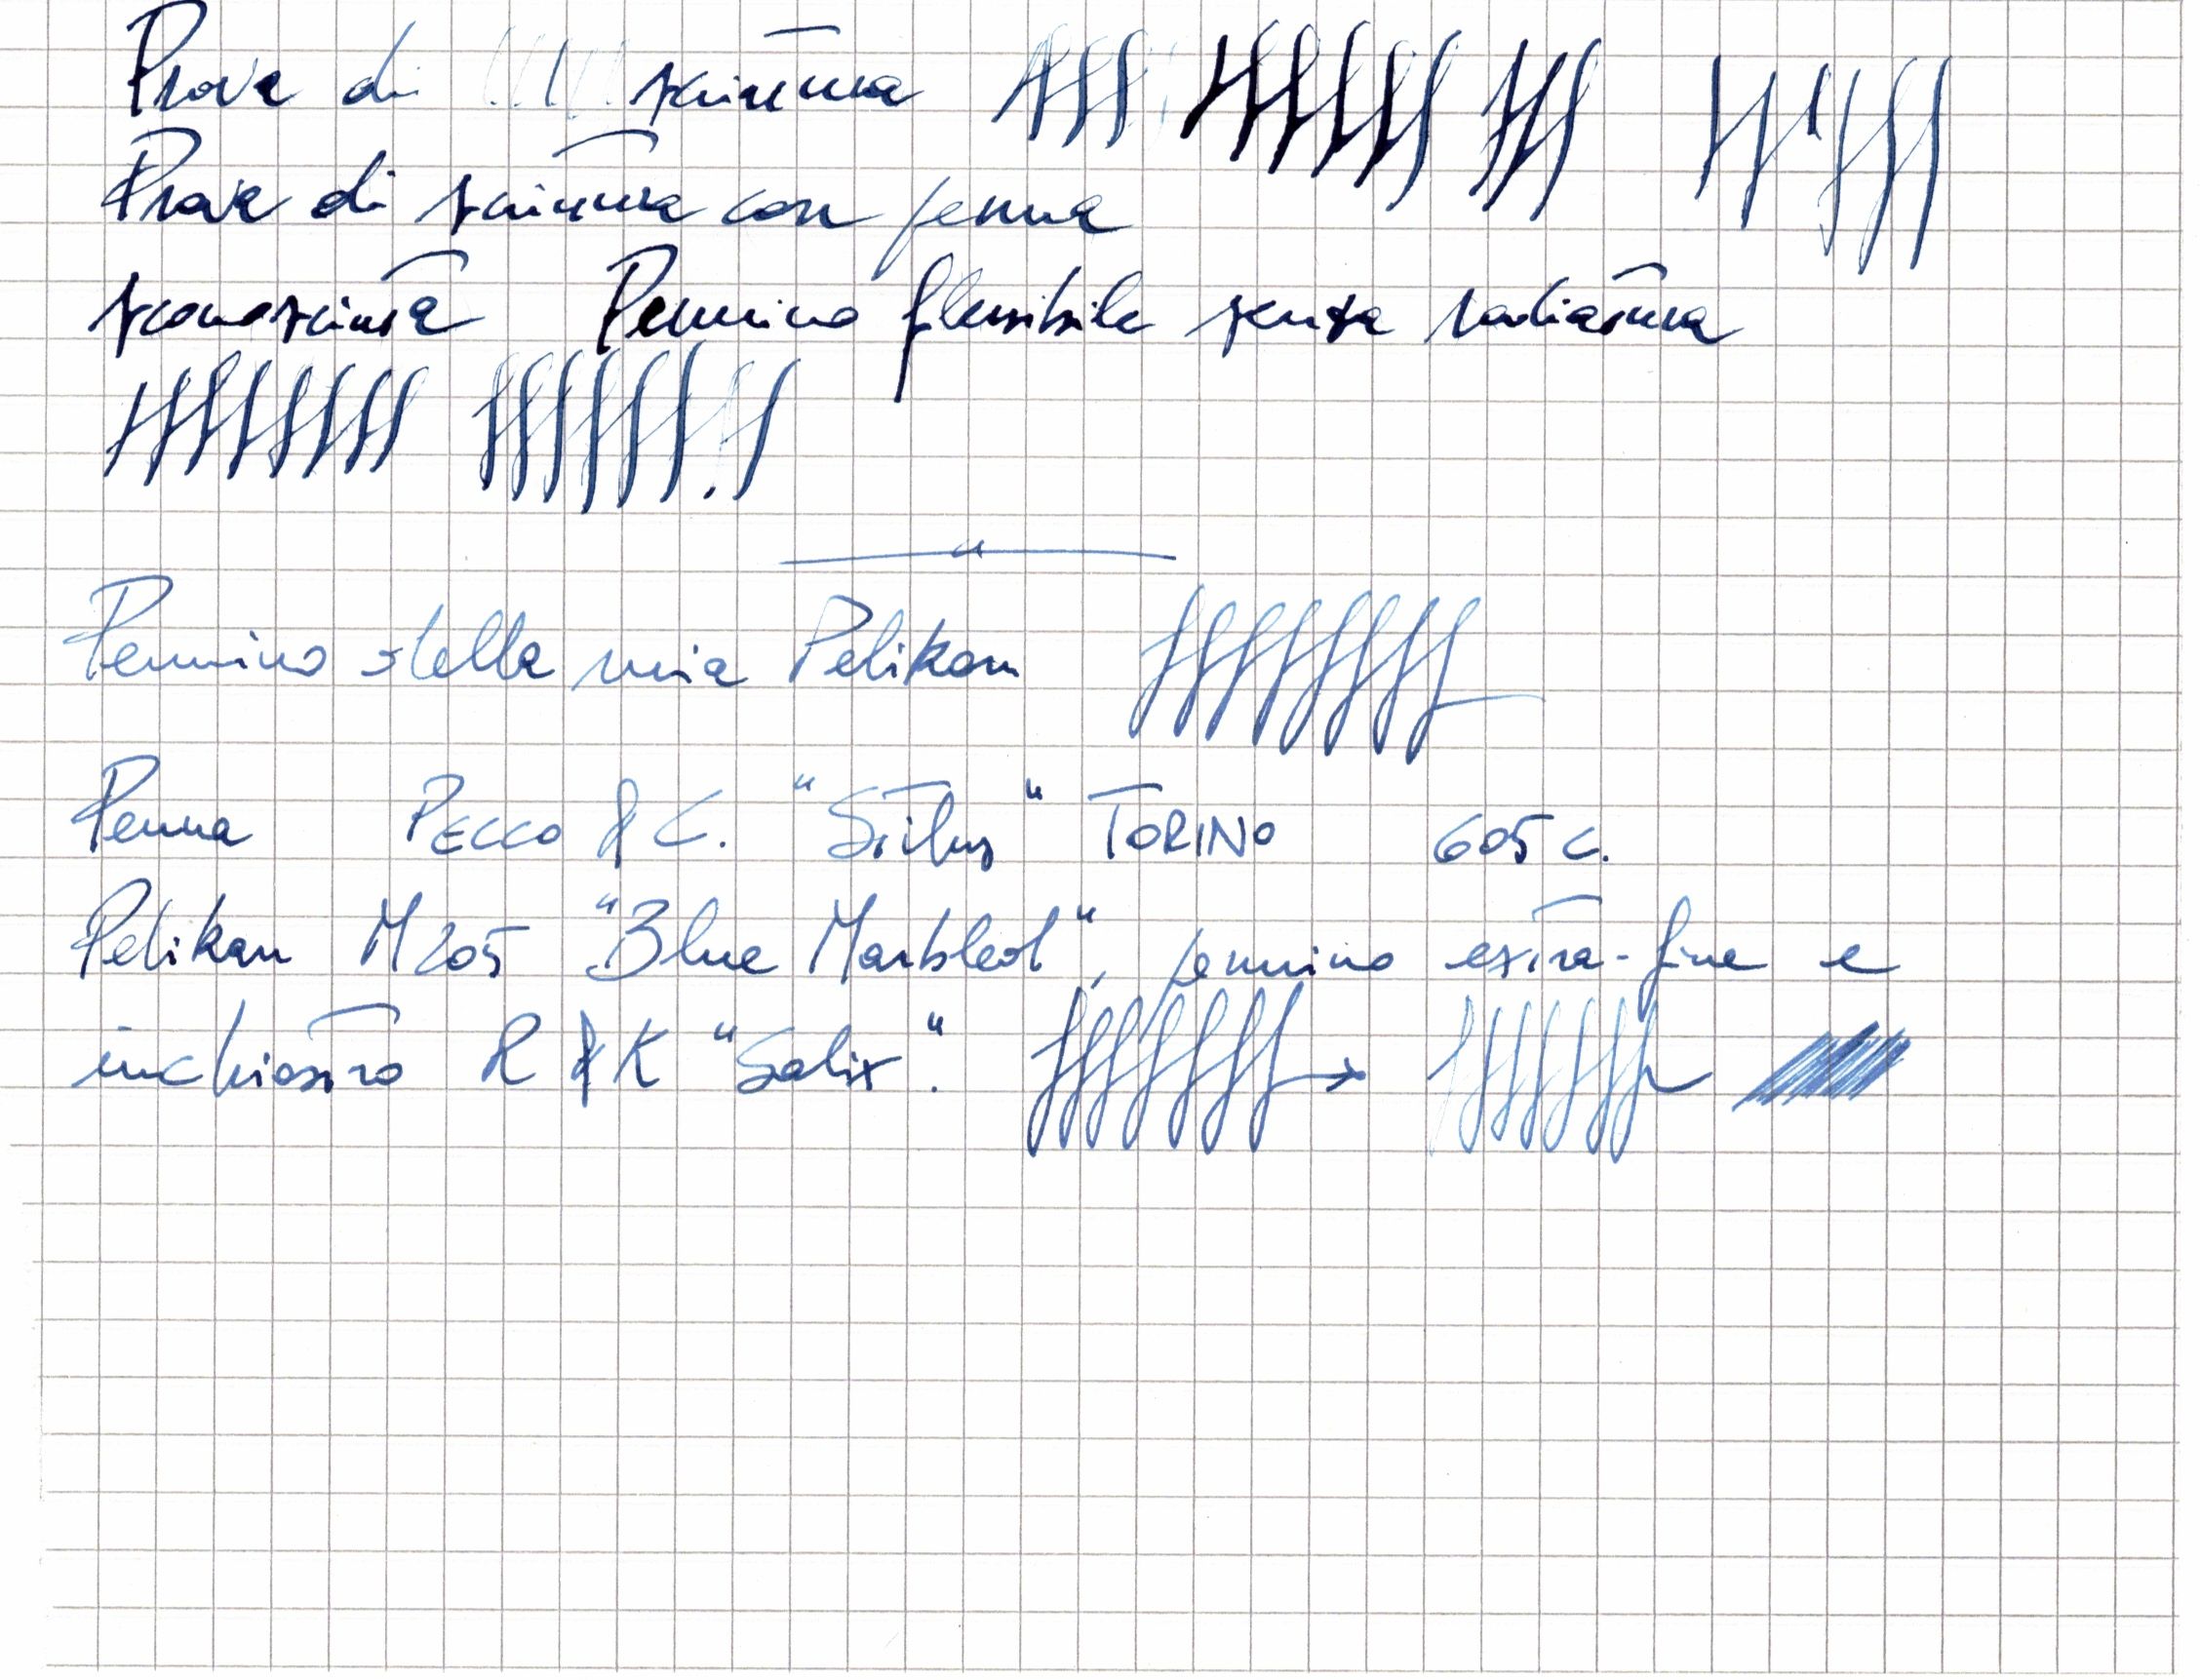 Prova di scrittura
Prova di scrittura con penna
sconosciuta Pennino flessibile senza radiatura
Pennino della mia Pelikan
Penna PECCO & C. "Stilus" TORINO 605 C.
Pelikan M205 "Blue Marbled", pennino extra-fine e
inchiostro R & K "Salix".